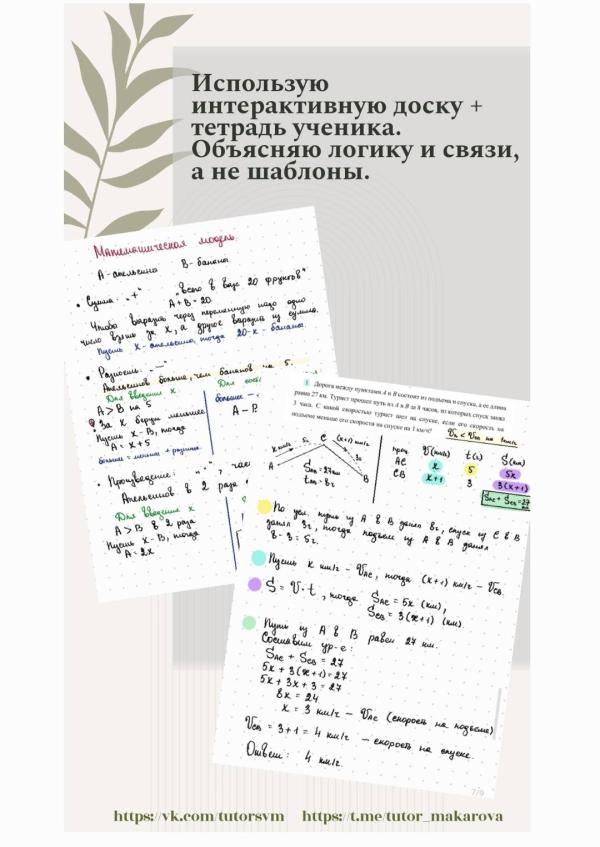 Использую
интерактивную доску +
тетрадь ученика.
Объясняю логику и связи,
а не шаблоны.
Математическая модель
A - апельсины B - бананы
• Сумма: "+" "всего в вазе 20 фруктов"
A + B = 20
Чтобы выразить через переменную надо одно
число взять за x, а другое выразить из суммы.
Пусть x - апельсины, тогда 20-x - бананы.
• Разность: "-"
Апельсинов больше, чем бананов на 5.
Для введения x
A > B на 5
За x берём меньшее
Пусть x - B, тогда
A = x + 5
больше = меньше + разница
Для
больше -
A - B
• Произведение: "·",
Апельсинов в 2 раза
Для введения x
A > B в 2 раза
Пусть x - B, тогда
A = 2x
1 Дорога между пунктами A и B состоит из подъема и спуска, а ее длина
равна 27 км. Турист прошел путь из A в B за 8 часов, из которых спуск занял
3 часа. С какой скоростью турист шел на спуске, если его скорость на
подъеме меньше его скорости на спуске на 1 км/ч?
A
x км/ч
5ч
C
(x+1) км/ч
3ч
B
S = 27км
t = 8ч
V(км/ч) t(ч) S(км)
AC x 5 5x
CB x+1 3 3(x+1)
SAC + SCB = 27
По усл. путь из A в B занял 8ч, спуск из C в B
занял 3ч, тогда подъём из A в B занял
8 - 3 = 5ч.
Пусть x км/ч - VAC, тогда (x+1) км/ч - VCB.
S = V · t, тогда SAC = 5x (км),
SCB = 3(x+1) (км).
Путь из A в B равен 27 км.
Составим ур-е:
SAC + SCB = 27
5x + 3(x+1) = 27
5x + 3x + 3 = 27
8x = 24
x = 3 км/ч - VAC (скорость на подъёме)
VCB = 3+1 = 4 км/ч - скорость на спуске.
Ответ: 4 км/ч.
7/9
https://vk.com/tutorsvm https://t.me/tutor_makarova